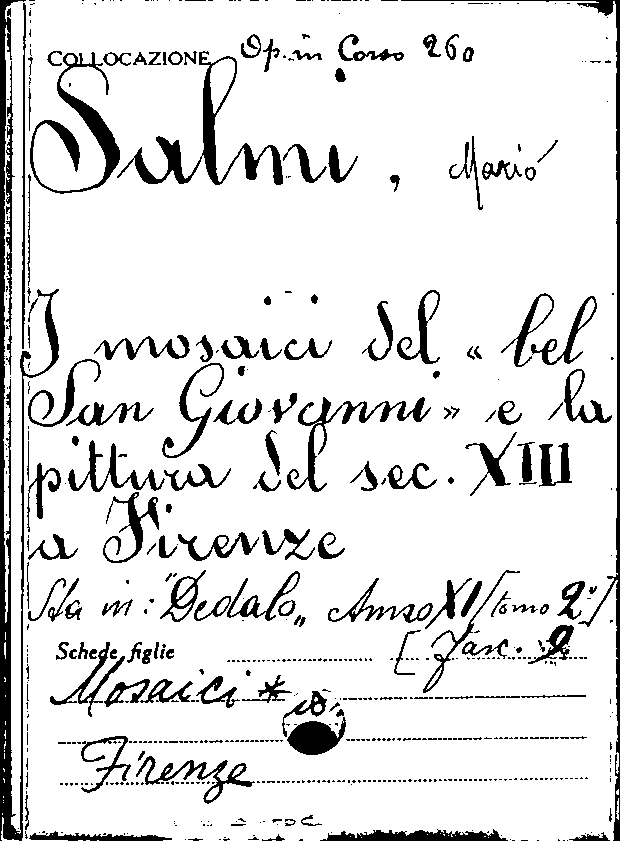 COLLOCAZIONE Op. in Corso 260
Salmi, Mario
I mosaici del « bel
San Giovanni » e la
pittura del sec. XIII
a Firenze
Sta in: "Dedalo„ Anno XI [tomo 2°]
Schede figlie [fasc. 9
Mosaici *
Firenze